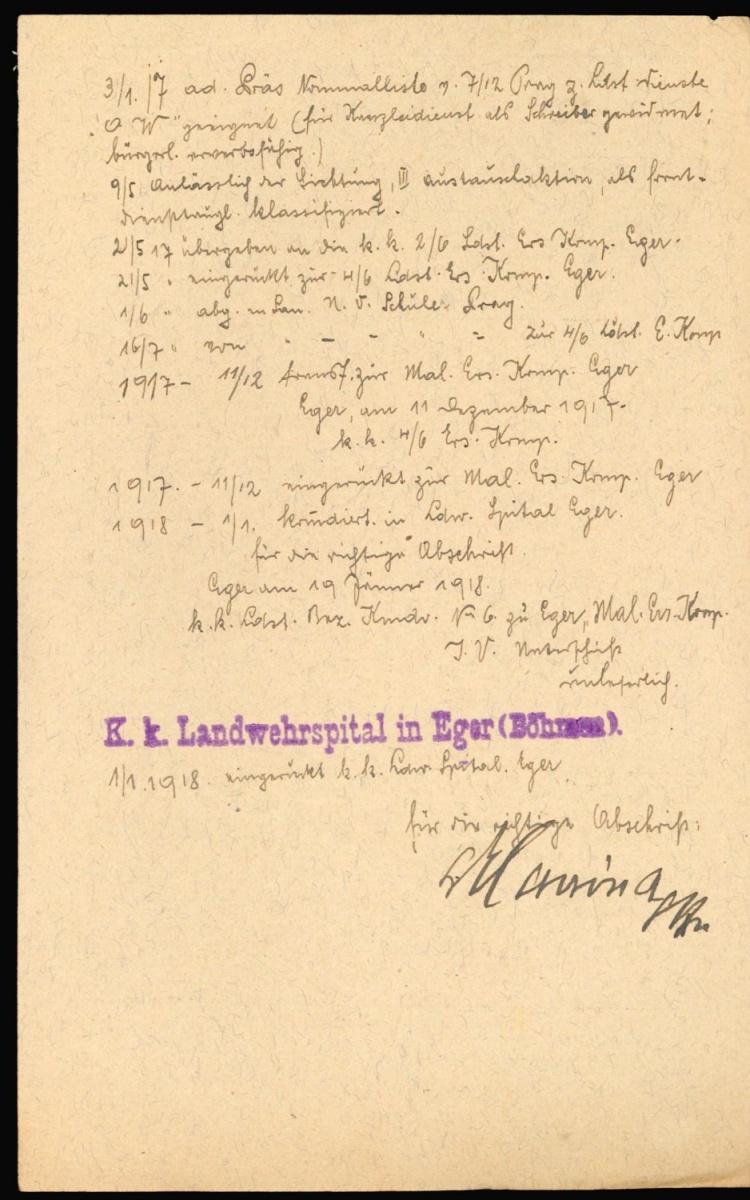 3/1. 17 ad. Präs Nominalliste v. 7/12 Prag z. Ldst. dienste
o W" geeignet (für Kanzleidienst als Schreiber gewidmet;
bürgerl. erwerbsfähig.)
9/5 Anlässlich der Sichtung, III Austauschaktion, als front-
diensttaugl. klassifiziert.
21/5 17 übergeben an die k. k. 2/6 Ldst. Ers Komp. Eger.
21/5 " eingerückt zur 4/6 Ldst. Ers Komp. Eger.
1/6 " abg. in San. U. O. Schule Prag.
16/7 " von " - - - " = zur 4/6 Ldst. E. Komp
1917 - 11/12 transf. zur Mal. Ers. Komp. Eger
Eger, am 11 Dezember 1917.
k. k. 4/6 Ers. Komp.
1917. - 11/12 eingerückt zur Mal. Ers. Komp. Eger
1918 - 1/1. in Ldw. Spital Eger.
für die richtige Abschrift.
Eger am 19 Jänner 1918.
k. k. Ldst. Bez. Kmdo. No 6 zu Eger, Mal. Ers. Komp.
I. V. Unterschrift
unleserlich.
K. k. Landwehrspital in Eger (Böhmen).
1/1. 1918. eingerückt k. k. Ldw. Spital. Eger
für die richtige Abschrift: